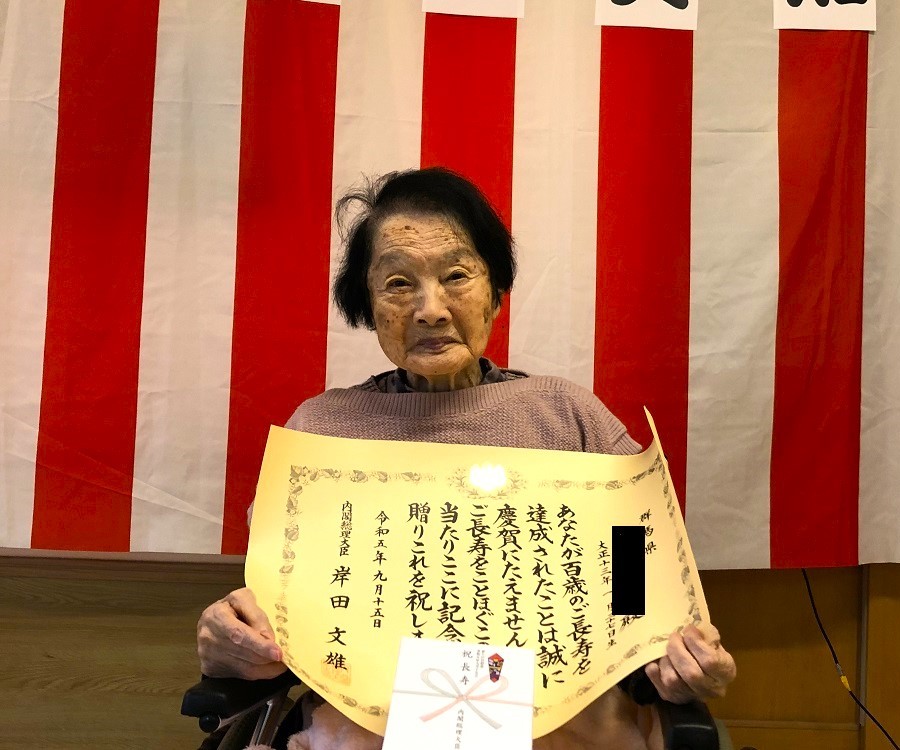 群馬県
大正十三年一月十七日生
あなたが百歳のご長寿を
達成されたことは誠に
慶賀にたえません
ご長寿をことほぐこ
当たりここに記念
贈りこれを祝しま
令和五年九月十五日
内閣総理大臣
岸田文雄
祝長寿
内閣総理大臣